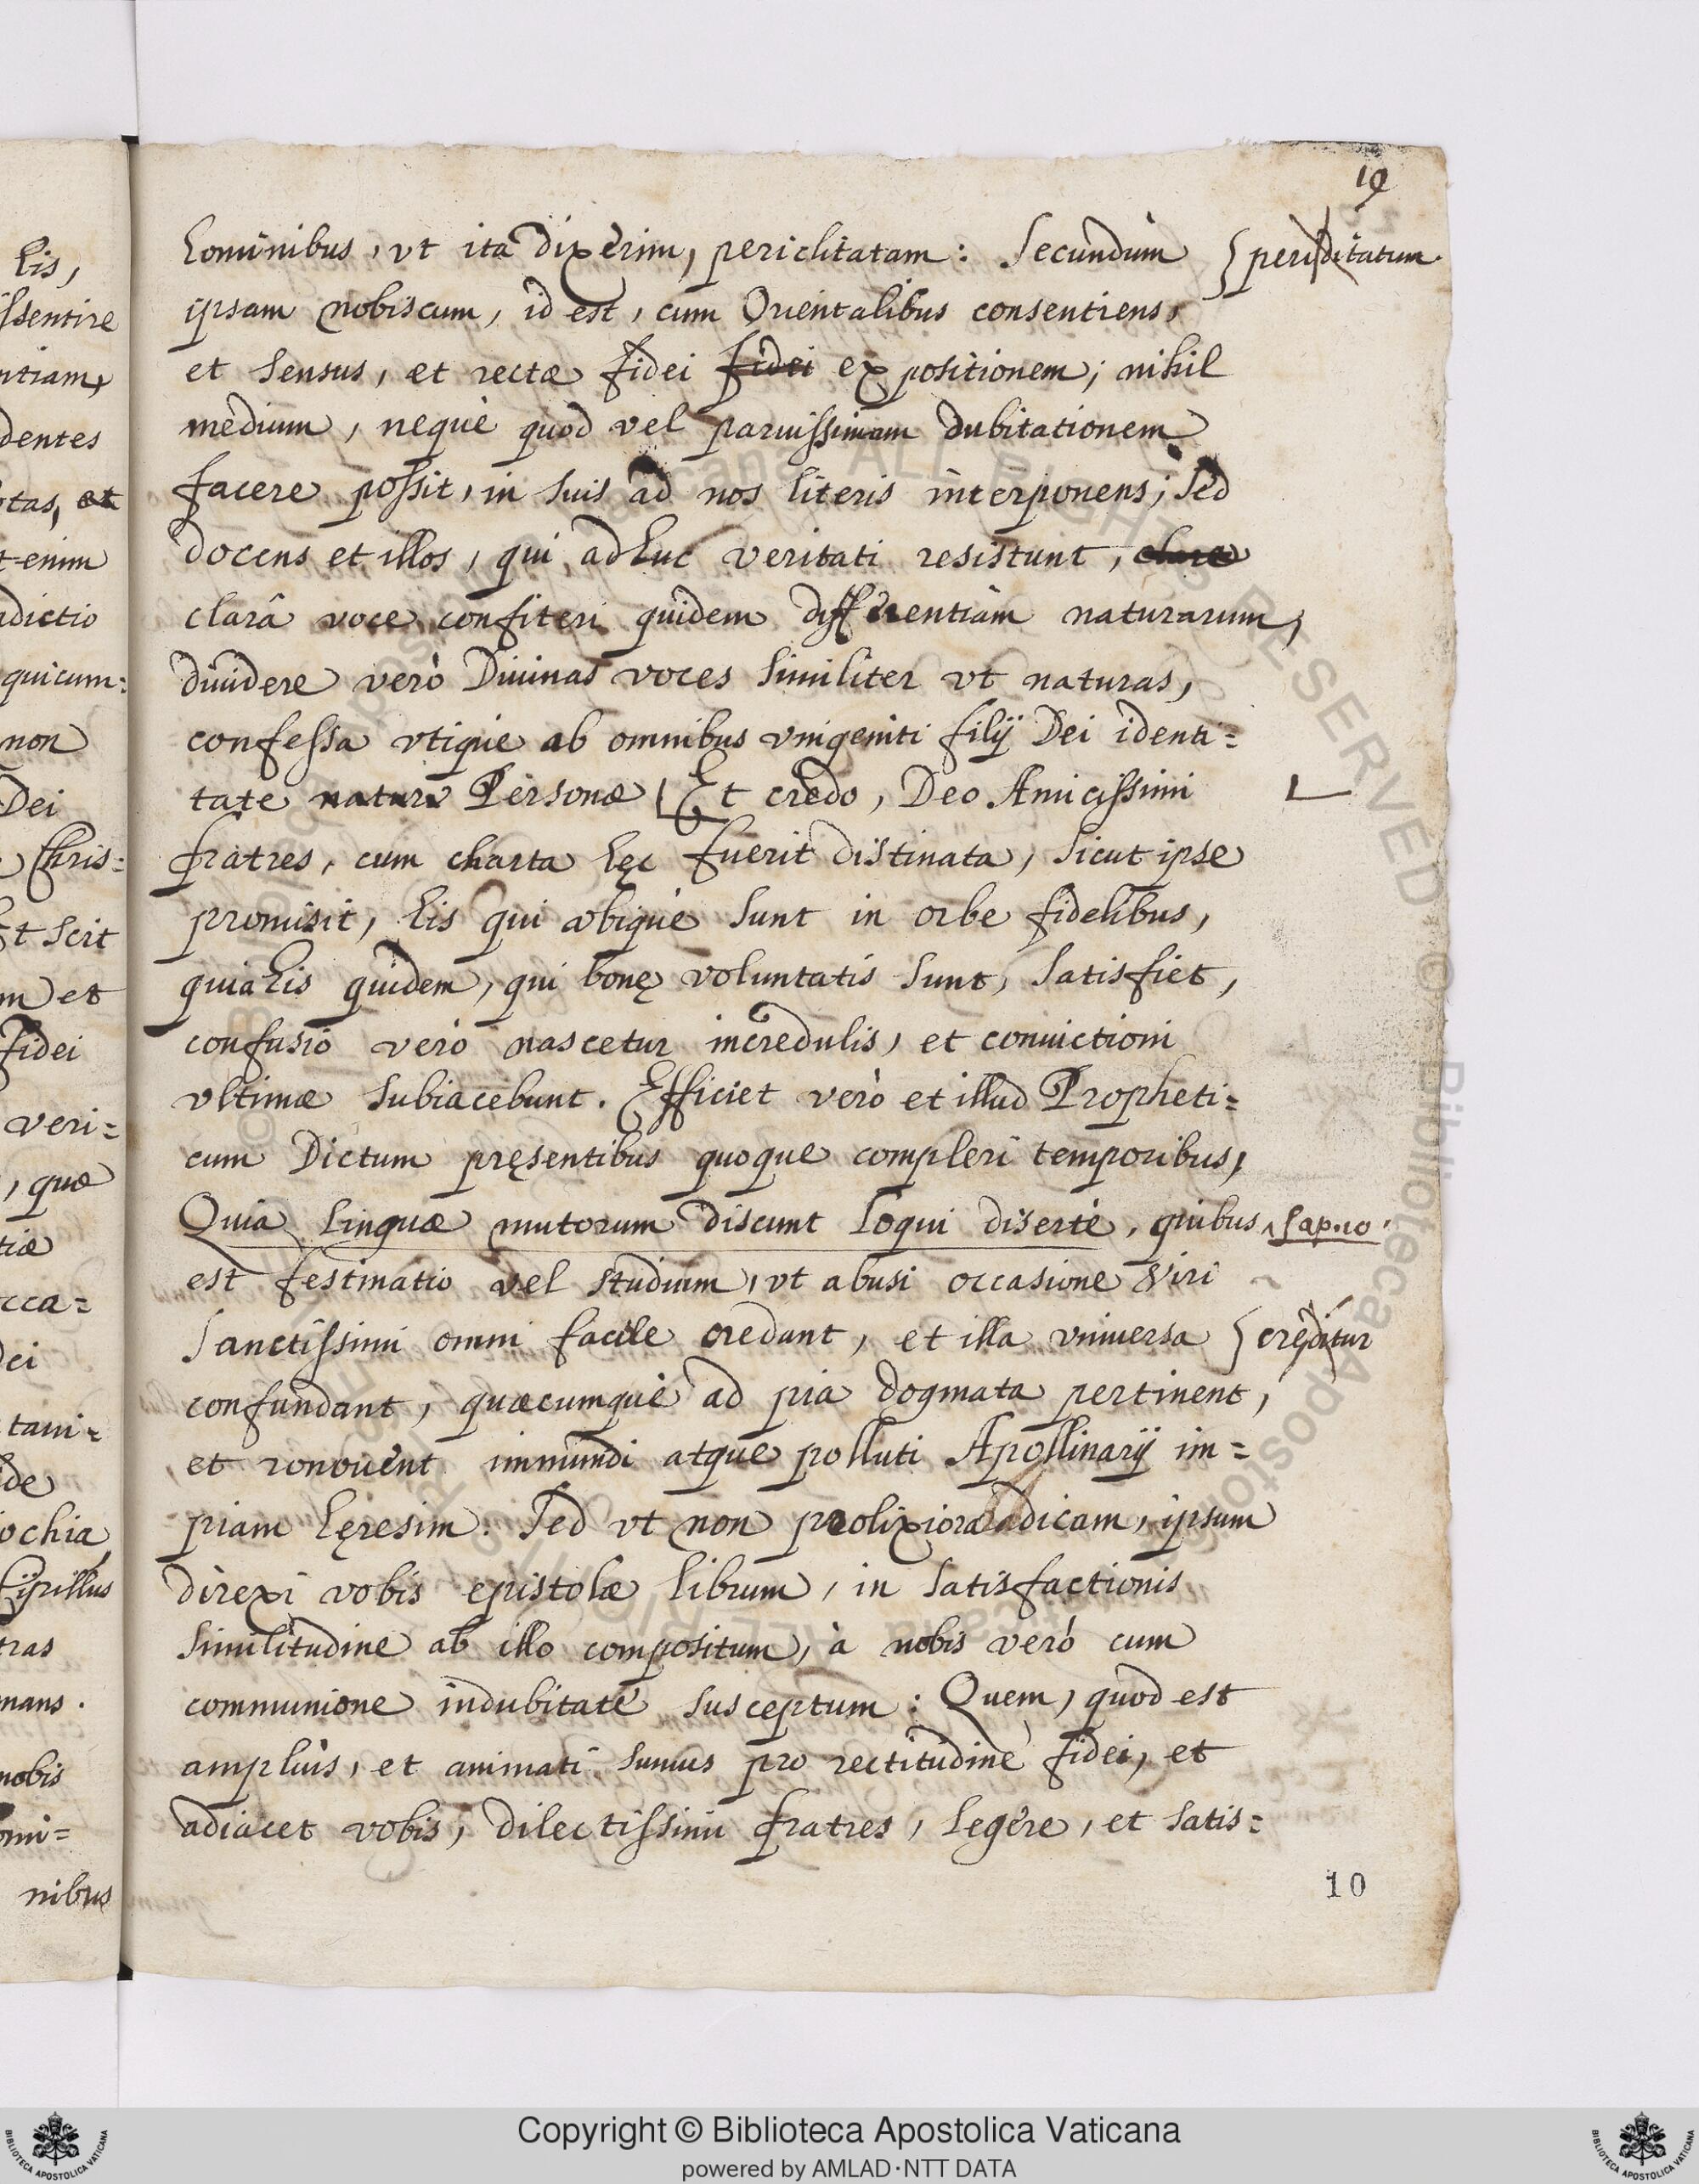 his,
ssentire
ntiam,
dentes
otas, et
t enim
adictio
quicum=
non
Dei
Chris=
Et scit
m et
fidei
veri=
, quæ
tiæ
cca=
Dei
tani=
de
ochia,
Cyrillus
tras
mans.
nobis
omi=
nibus
19
hominibus, vt ita dixerim, periclitatam: Secundùm { periclitatum.
ipsam nobiscum, id est, cum Orientalibus consentiens,
et sensus, et rectæ fidei fidei expositionem; nihil
medium, nequè quod vel paruissimam dubitationem
facere possit, in suis ad nos literis interponens; Sed
docens et illos, qui adhuc veritati resistunt, clare
clarâ voce confiteri quidem differentiam naturarum,
diuidere verò Diuinas voces similiter vt naturas,
confessa vtique ab omnibus vnigeniti filij Dei identi=
tate naturæ Personæ [Et credo, Deo Amicissimi
fratres, cum charta hęc fuerit distinata, sicut ipse
promisit, his qui vbique sunt in orbe fidelibus,
quia his quidem, qui bonę voluntatis sunt, satisfiet,
confusio verò nascetur incredulis, et conuictioni
vltimæ subiacebunt. Efficiet verò et illud Propheti=
cum Dictum pręsentibus quoque compleri temporibus,
Quia linguæ mutorum discunt loqui disertè. quibus ^ Sap. 10.
est festinatio vel studium, vt abusi occasione Viri
Sanctissimi omni facile credant, et illa vniuersa { creditur
confundant, quæcumquè ad pia dogmata pertinent,
et renouent immundi atque polluti Apollinarij im=
piam hęresim. Sed vt non prolixiora dicam, ipsum
direxi vobis epistolæ librum, in satisfactionis
similitudine ab illo compositum, à nobis verò cum
communione indubitatè susceptum: Quem, quod est
ampliùs, et animati sumus pro rectitudine fidei, et
adiacet vobis, dilectissimi fratres, legere, et satis=
10
Copyright © Biblioteca Apostolica Vaticana
powered by AMLAD·NTT DATA